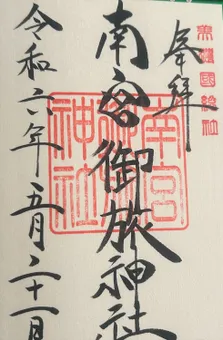 奉拝
美濃國総社
南宮御旅神社
南宮御旅神社
令和六年五月二十一日